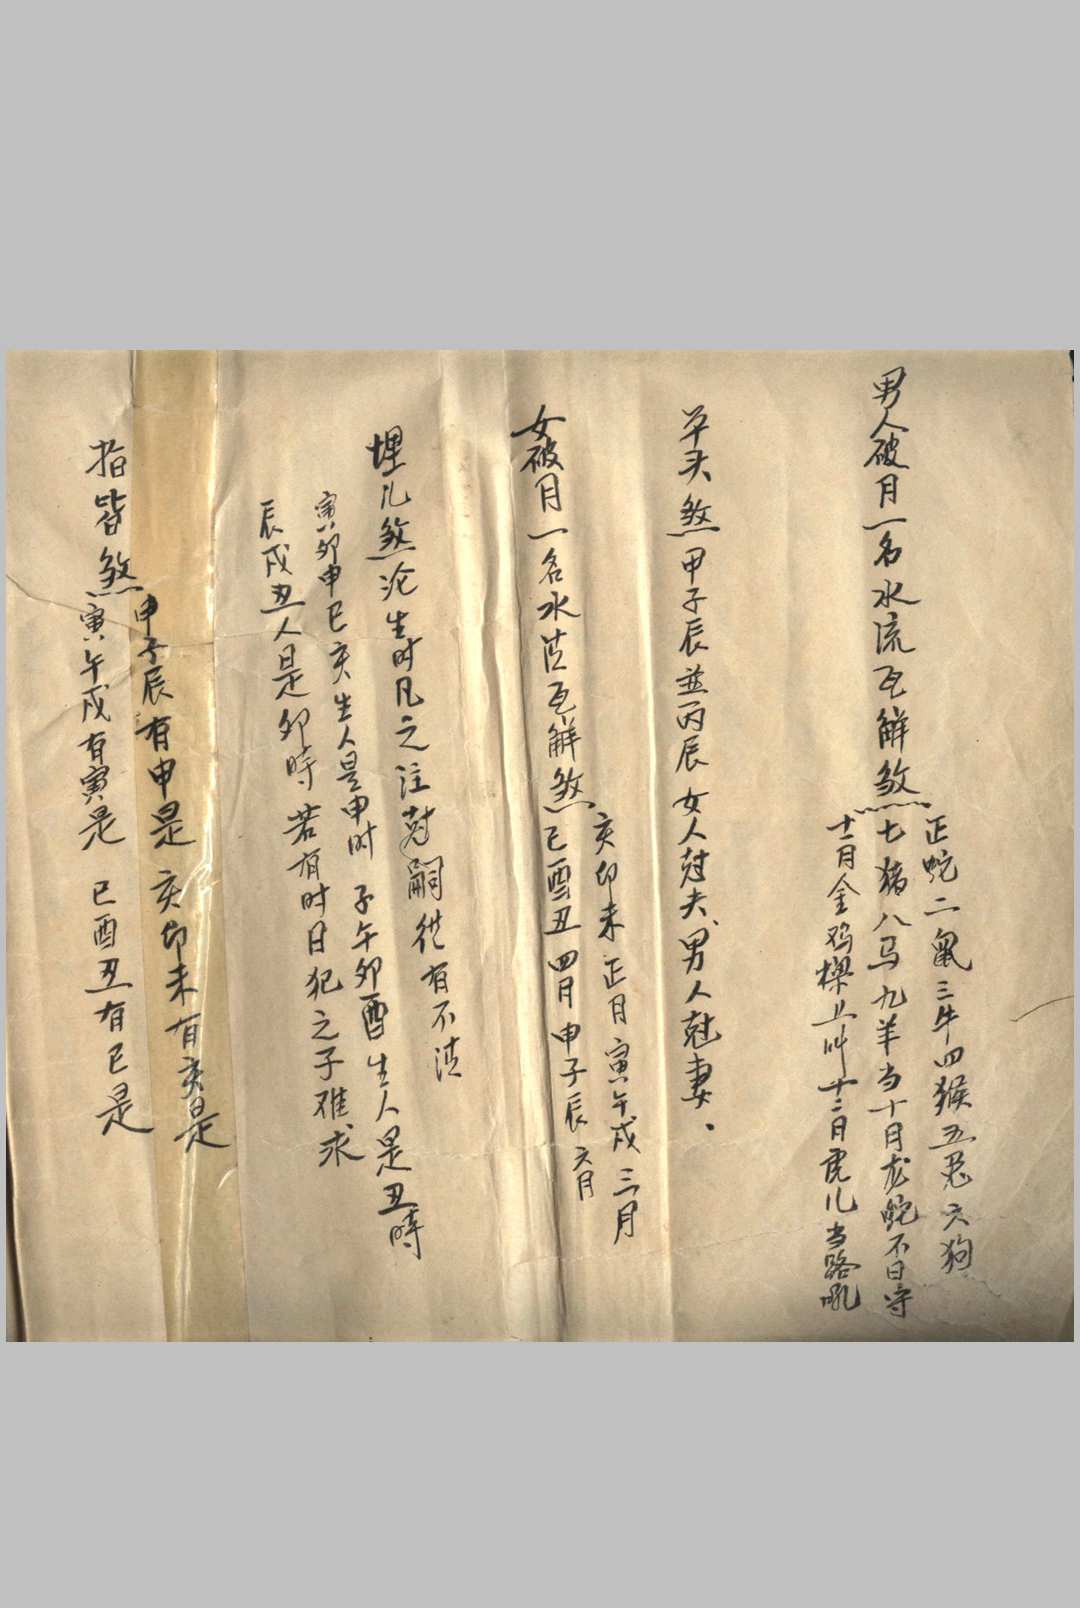 男人破月一名水流瓦解煞
正蛇二鼠三牛四猴五兎六狗
七猪八马九羊当十月龙蛇不日守
十一月金鸡樑上叫十二月虎儿当路吼
草头煞甲子辰並丙辰女人尅夫、男人尅妻、
女破月一名水流瓦解煞
亥卯未正月寅午戌三月
巳酉丑四月申子辰六月
埋儿煞论生时凡之注尅嗣後有不
寅卯申巳亥生人是申时子午卯酉生人是丑時
辰戌丑人是卯時若有时日犯之子难求
指皆煞
申子辰有申是亥卯未有亥是
寅午戌有寅是巳酉丑有巳是